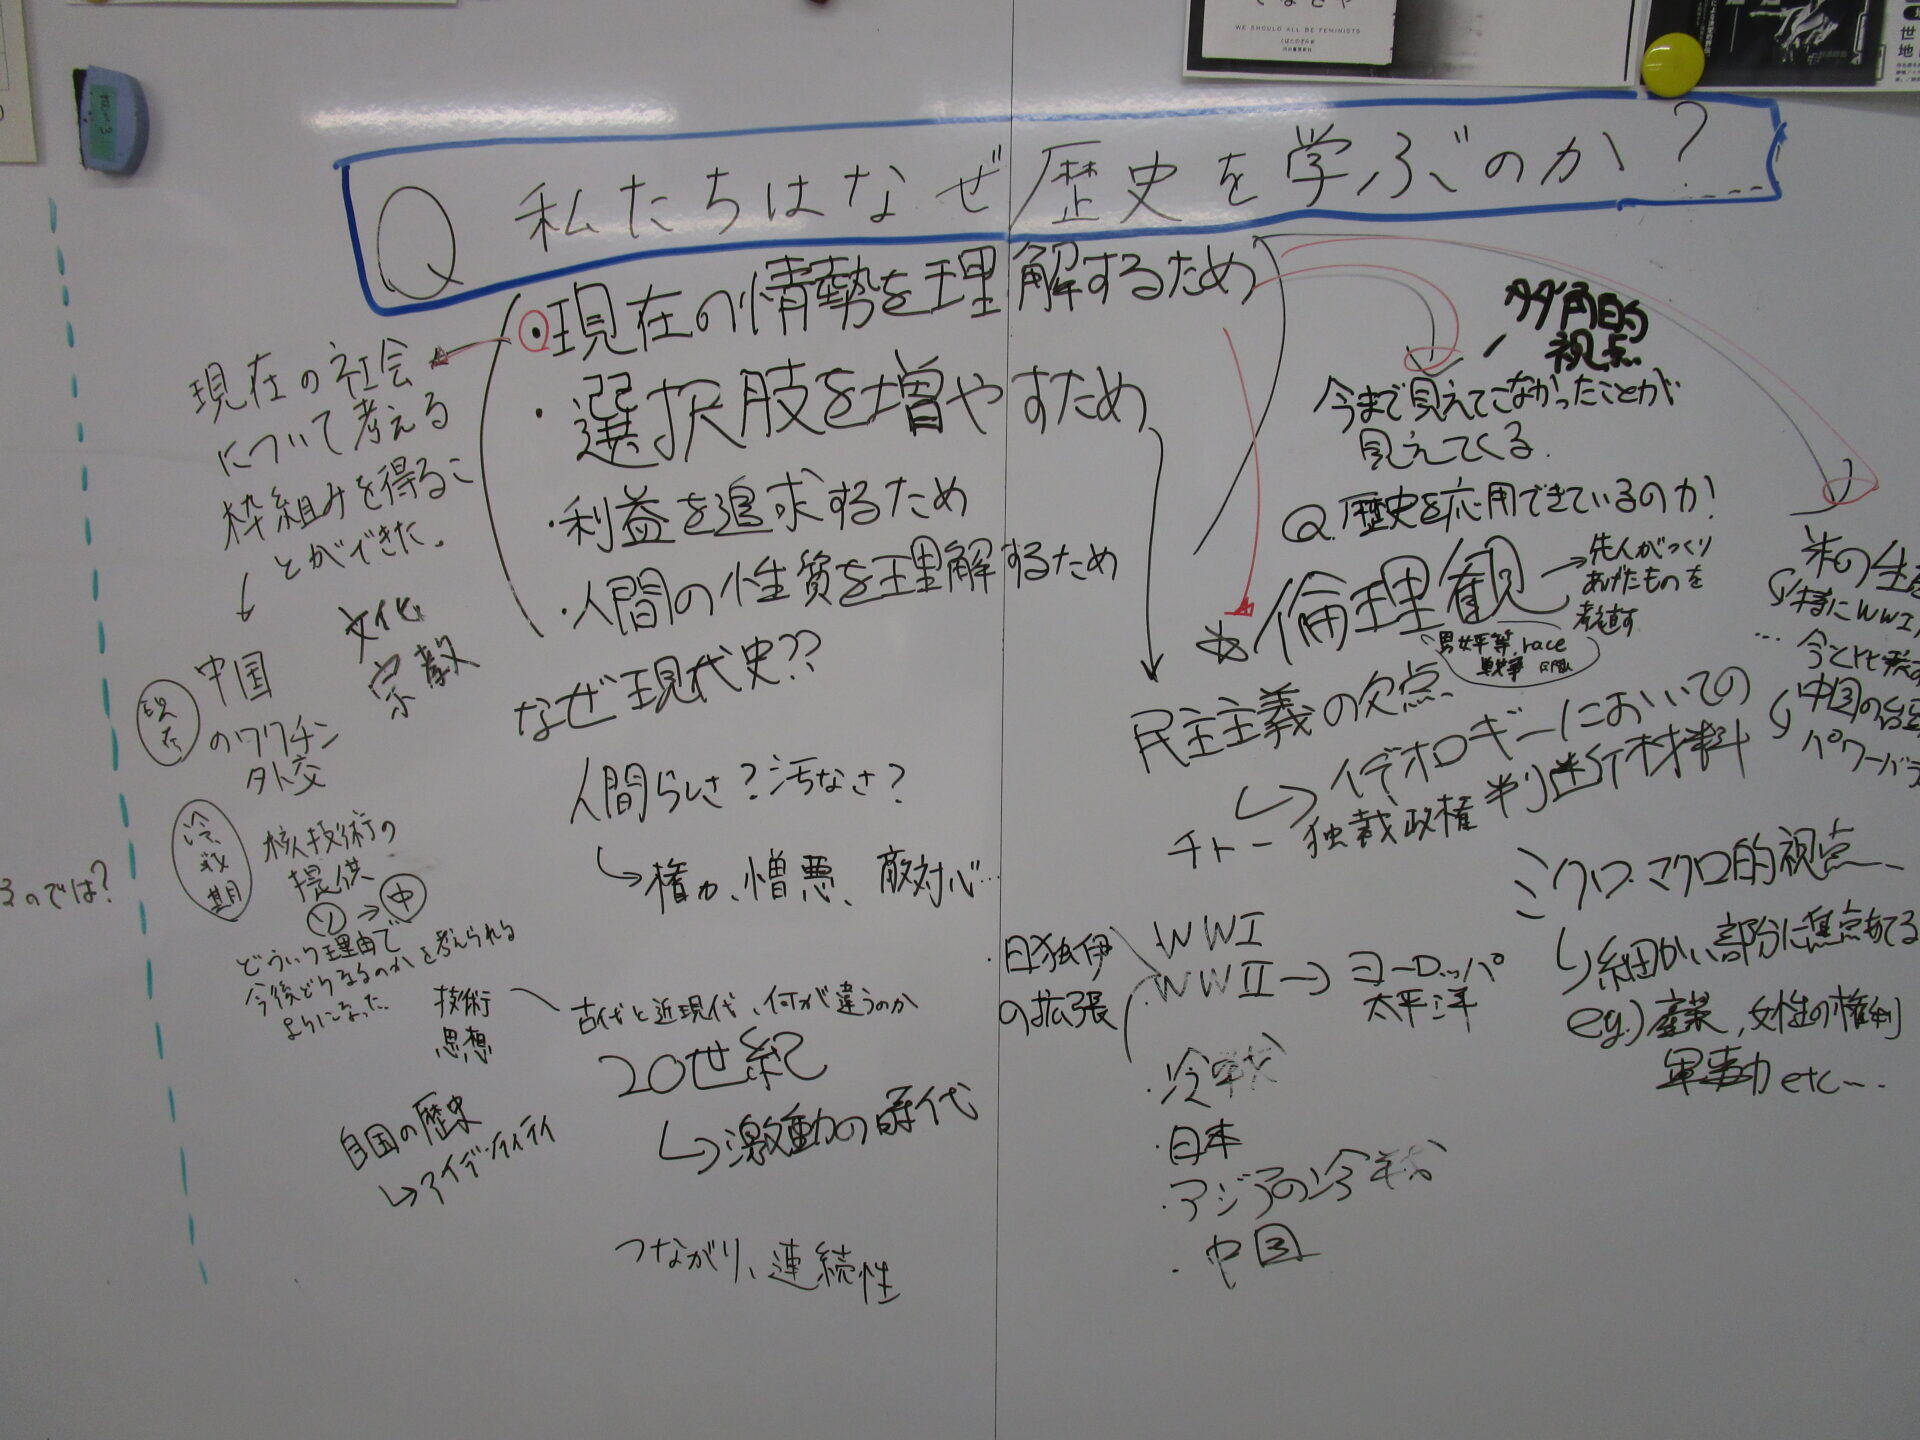 WE SHOULD ALL BE FEMINISTS
Q 私たちはなぜ歴史を学ぶのか?
・現在の情勢を理解するため
・選択肢を増やすため
・利益を追求するため
・人間の性質を理解するため
なぜ現代史??
人間らしさ?汚なさ?
↳権力、憎悪、敵対心…
古代と近現代、何が違うのか
20世紀
↳激動の時代
つながり、連続性
現在の社会
について考える
枠組みを得るこ
とができた。
文化
宗教
現在
中国
のワクチン
外交
冷戦期
核技術の
提供
ソ→中
どういう理由で
今後どうなるのかを考えられる
ようになった
技術
思想
自国の歴史
↳アイデンティティ
るのでは?
多角的
視点
今まで見えてこなかったことが
見えてくる.
Q.歴史を応用できているのか!
☆倫理観
→先人がつくり
あげたものを
考え直す
男女平等, race
戦争
民主主義の欠点
↳イデオロギーにおいての
判断材料
チトー独裁政権
ミクロ・マクロ的視点
↳細かい部分に焦点あてる
eg.)産業,女性の権利
軍事力 etc…
・日独伊
の拡張
WWI
WWII→ヨーロッパ
太平洋
・冷戦
・日本
・アジアの冷戦
・中国
米の生
特にWWI
…今と比
中国の台
パワーバラ